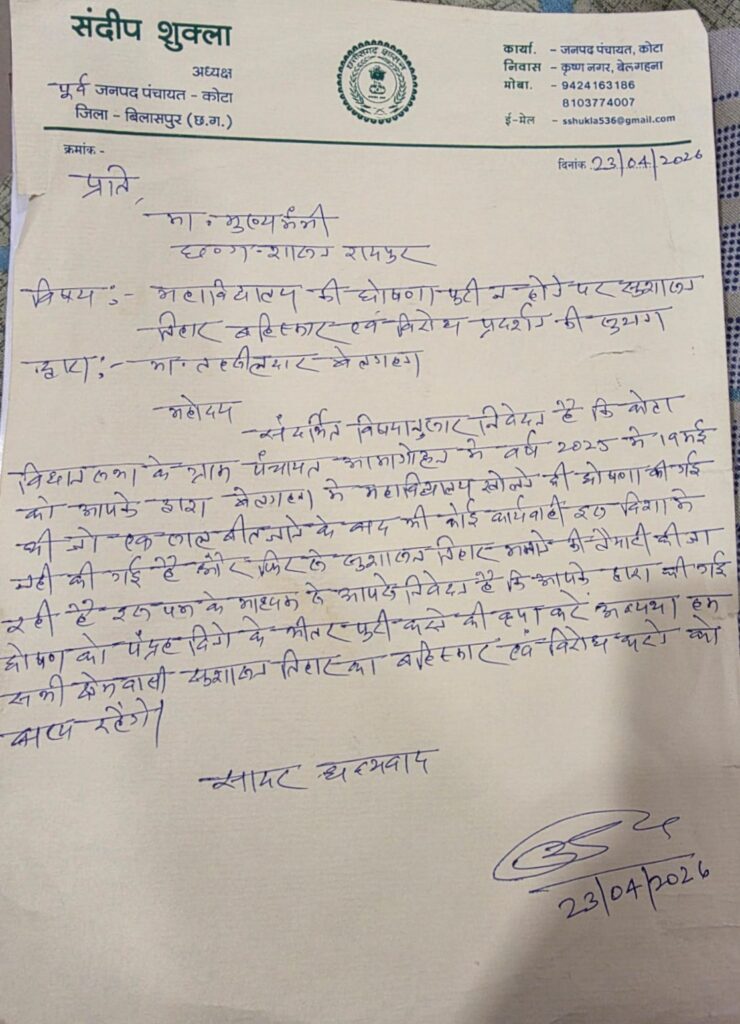 संदीप शुक्ला
अध्यक्ष
पूर्व जनपद पंचायत - कोटा
जिला - बिलासपुर (छ.ग.)
छत्तीसगढ़ शासन
कार्या. - जनपद पंचायत, कोटा
निवास - कृष्ण नगर, बेलगहना
मोबा. - 9424163186
8103774007
ई-मेल - sshukla536@gmail.com
क्रमांक -
दिनांक 23/04/2026
प्रति,
मा. मुख्यमंत्री
छ०ग० शासन रायपुर
विषय :- महाविद्यालय की घोषणा पुरी न होने पर सुशासन
तिहार बहिस्कार एवं विरोध प्रदर्शन की
द्वारा :- मा. तहसीलदार बेलगहना
महोदय
संदर्भित विषयानुसार निवेदन है कि कोटा
विधानसभा के ग्राम पंचायत आमागोहन मे वर्ष 2025 मे 19 मई
को आपके द्वारा बेलगहना मे महाविद्यालय खोलने की घोषणा की गई
थी जो एक साल बीत जाने के बाद भी कोई कार्यवाही इस दिशा मे
नही की गई है और फिर से सुशासन तिहार मनाने की तैयारी की जा
रही है इस पत्र के माध्यम से आपसे निवेदन है कि आपके द्वारा की गई
घोषणा को पंद्रह दिनो के भीतर पुरी करने की कृपा करें अन्यथा हम
सभी क्षेत्रवासी सुशासन तिहार का बहिस्कार एवं विरोध करने को
बाध्य रहेंगे।
सादर धन्यवाद
23/04/2026